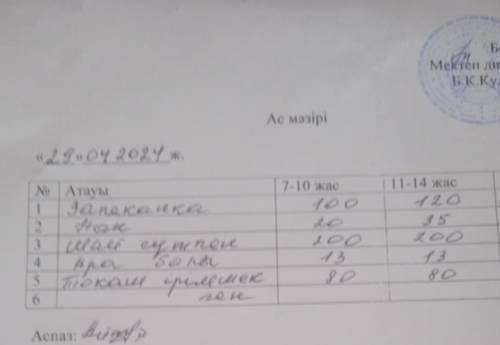 Мектеп
Б.К.Ку
Ас мәзірі
«29» 04 2024 ж.
№ Атауы 7-10 жас 11-14 жас
1 Запеканка 100 120
2 Нан 20 35
3 Шай сүтпен 200 200
4 13 13
5 Тоқаш ірімшік 80 80
6 пен
Аспаз: